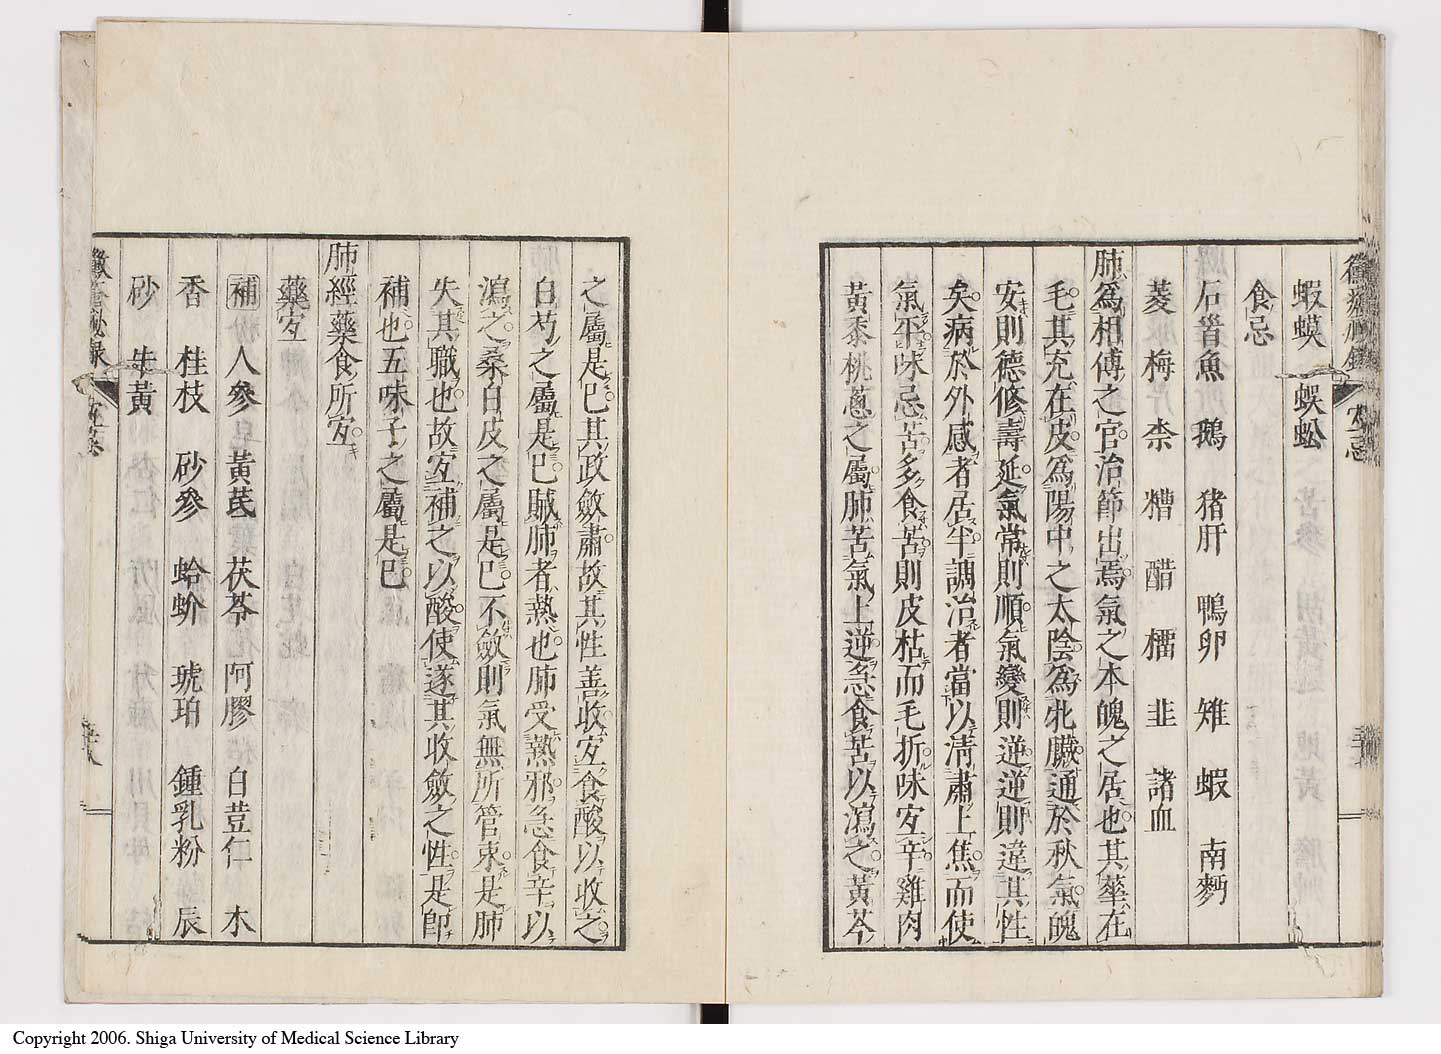 蝦蟆　蜈蚣
食忌
石首魚　鵝　猪肝　鴨卵　雉　蝦　南麪
菱　梅　柰　糟　醋　㰁　韭　諸血
肺爲相傅之官治節出焉氣之本魄之居也其華在
毛其充在皮爲陽中之太陰爲牝臟通於秋氣魄
安則德修壽延氣常則順氣變則逆逆則違其性
矣病於外感者居半調治者當以清肅上焦而使
氣平味忌苦多食苦則皮枯而毛折味宜辛雞肉
黃黍桃蔥之屬肺苦氣上逆急食苦以瀉之黃芩
之屬是巳其政斂肅故其性善收宜食酸以收之
白芍之屬是巳賊肺者熱也肺受熱邪急食辛以
瀉之桑白皮之屬是巳不斂則氣無所管束是肺
失其職也故宜補之以酸使遂其收斂之性是卽
補也五味子之屬是巳
肺經藥食所宜
藥宜
補　人參　黃芪　茯苓　阿膠　白荳仁　木
香　桂枝　砂參　蛤蚧　琥珀　鍾乳粉　辰
砂　牛黃
Copyright 2006. Shiga University of Medical Science Library